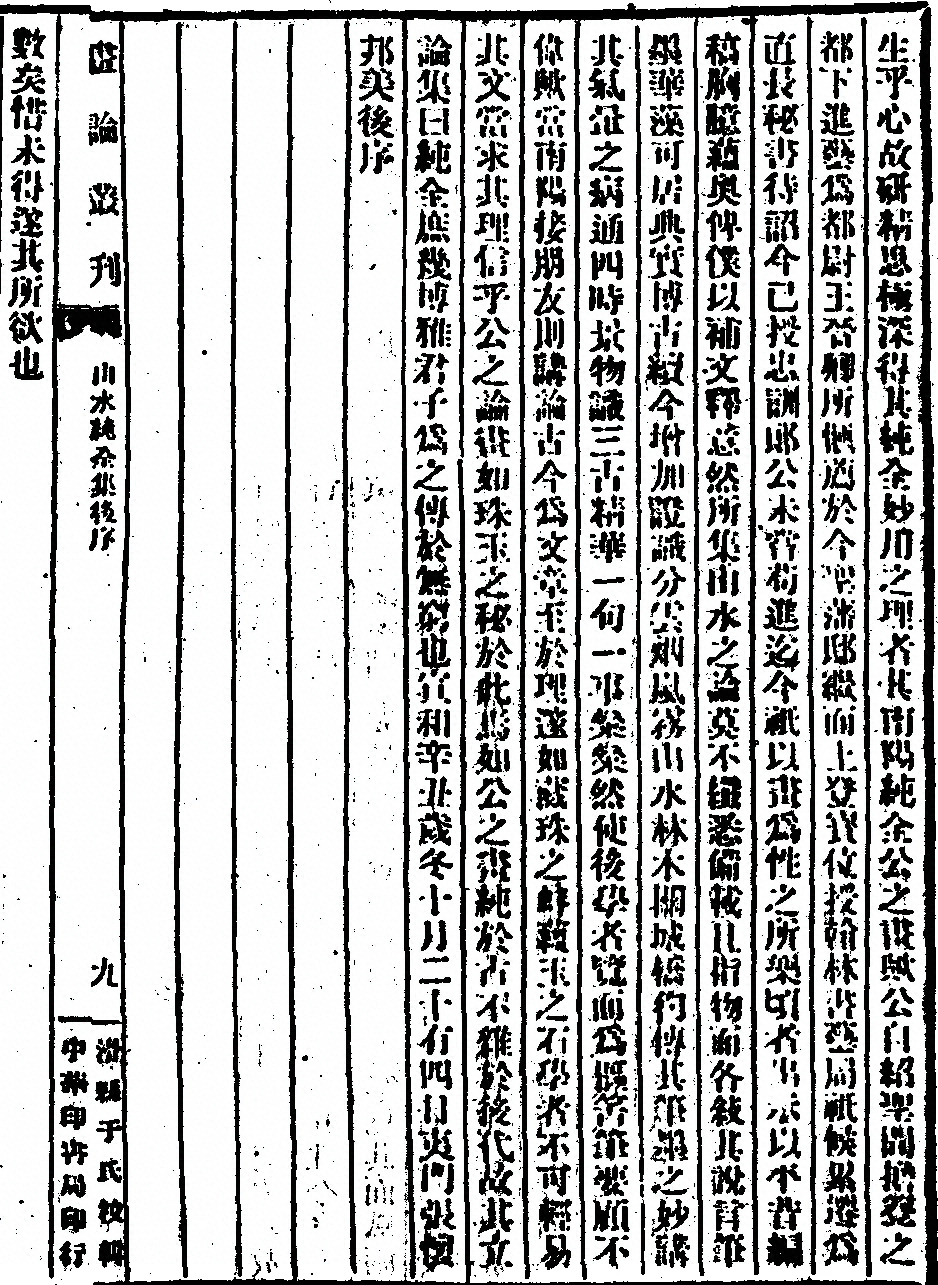 生乎心故研精思極深得其純全妙用之理者其南陽純全公之畫歟公自紹聖間擔簦之
都下進藝爲都尉王晉卿所愜薦於今聖藩邸繼而上登寶位授翰林書藝局祗候累遷爲
直長秘書待詔今已授忠訓郎公未嘗苟進迄今祗以畫爲性之所樂頃者出示以平昔編
稿胸臆蘊奧俾僕以補文釋意然所集山水之論莫不纖悉備載且指物而各敍其說言筆
墨華藻可居典實博古緻今增加證識分雲烟風霧山水林木關城橋彴傳其筆墨之妙講
其氣韻之病通四時景物識三古精華一句一事粲粲然使後學者覽而爲撰笞筆要顧不
偉歟當南陽接朋友則講論古今爲文章至於理遂如藏珠之蚌蘊玉之石學者不可輕易
其文當求其理信乎公之論畫如珠玉之秘於此焉如公之畫純於古不雜於後代故其立
論集曰純全庶幾博雅君子爲之傳於無窮也宣和辛丑歲冬十月二十有四日夷門張懷
邦美後序
畫論叢刊
山水純全集後序
九
滄縣于氏校輯
中華印書局印行
數矣惜未得遂其所欲也